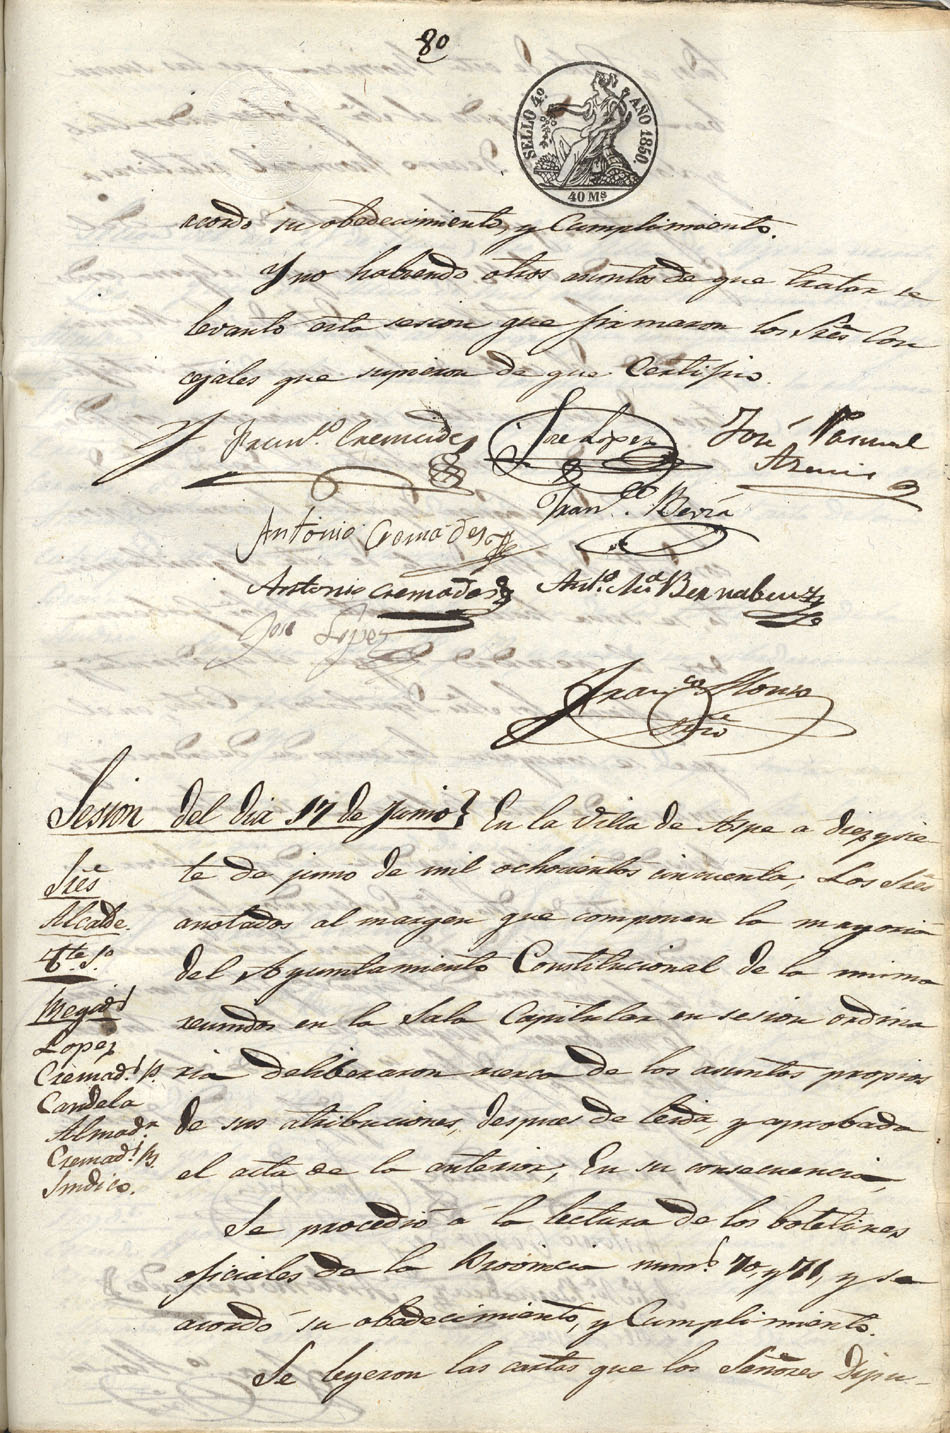 80
SELLO 4º AÑO 1850.
40 Ms
acordó su obedecimiento, y Cumplimiento.
Y no habiendo otros asuntos de que tratar se
levantó esta sesion que firmaron los Sres Con
cejales que supieron de que Certifico.
Franco. Cremades
Jose Lopez
José Pascual
Franco. Beviá
Antonio Cremades
Antonio Cremades
Anto. Ma. Bernabeu
Jose López
Franco. Alonso
Srio
Sesion del dia 17 de Junio. En la Villa de Aspe a diez y sie
te de junio de mil ochocientos cincuenta; Los Sres
anotados al margen que componen la mayoria
del Ayuntamiento Constitucional de la misma
reunidos en la Sala Capitular en sesion ordina
ria deliberaron acerca de los asuntos propios
de sus atribuciones, despues de leida, y aprobada
el acta de la anterior; En su consecuencia,
Sres
Alcalde.
Tte. 1o
Regids
Lopez
Cremads. p.
Candela
Almada.
Cremads. B.
Sindico.
Se procedió á la lectura de los boletines
oficiales de la Provincia nums. 70, y 71, y se
acordó su obedecimiento, y Cumplimiento.
Se leyeron las cartas que los Señores Dipu-